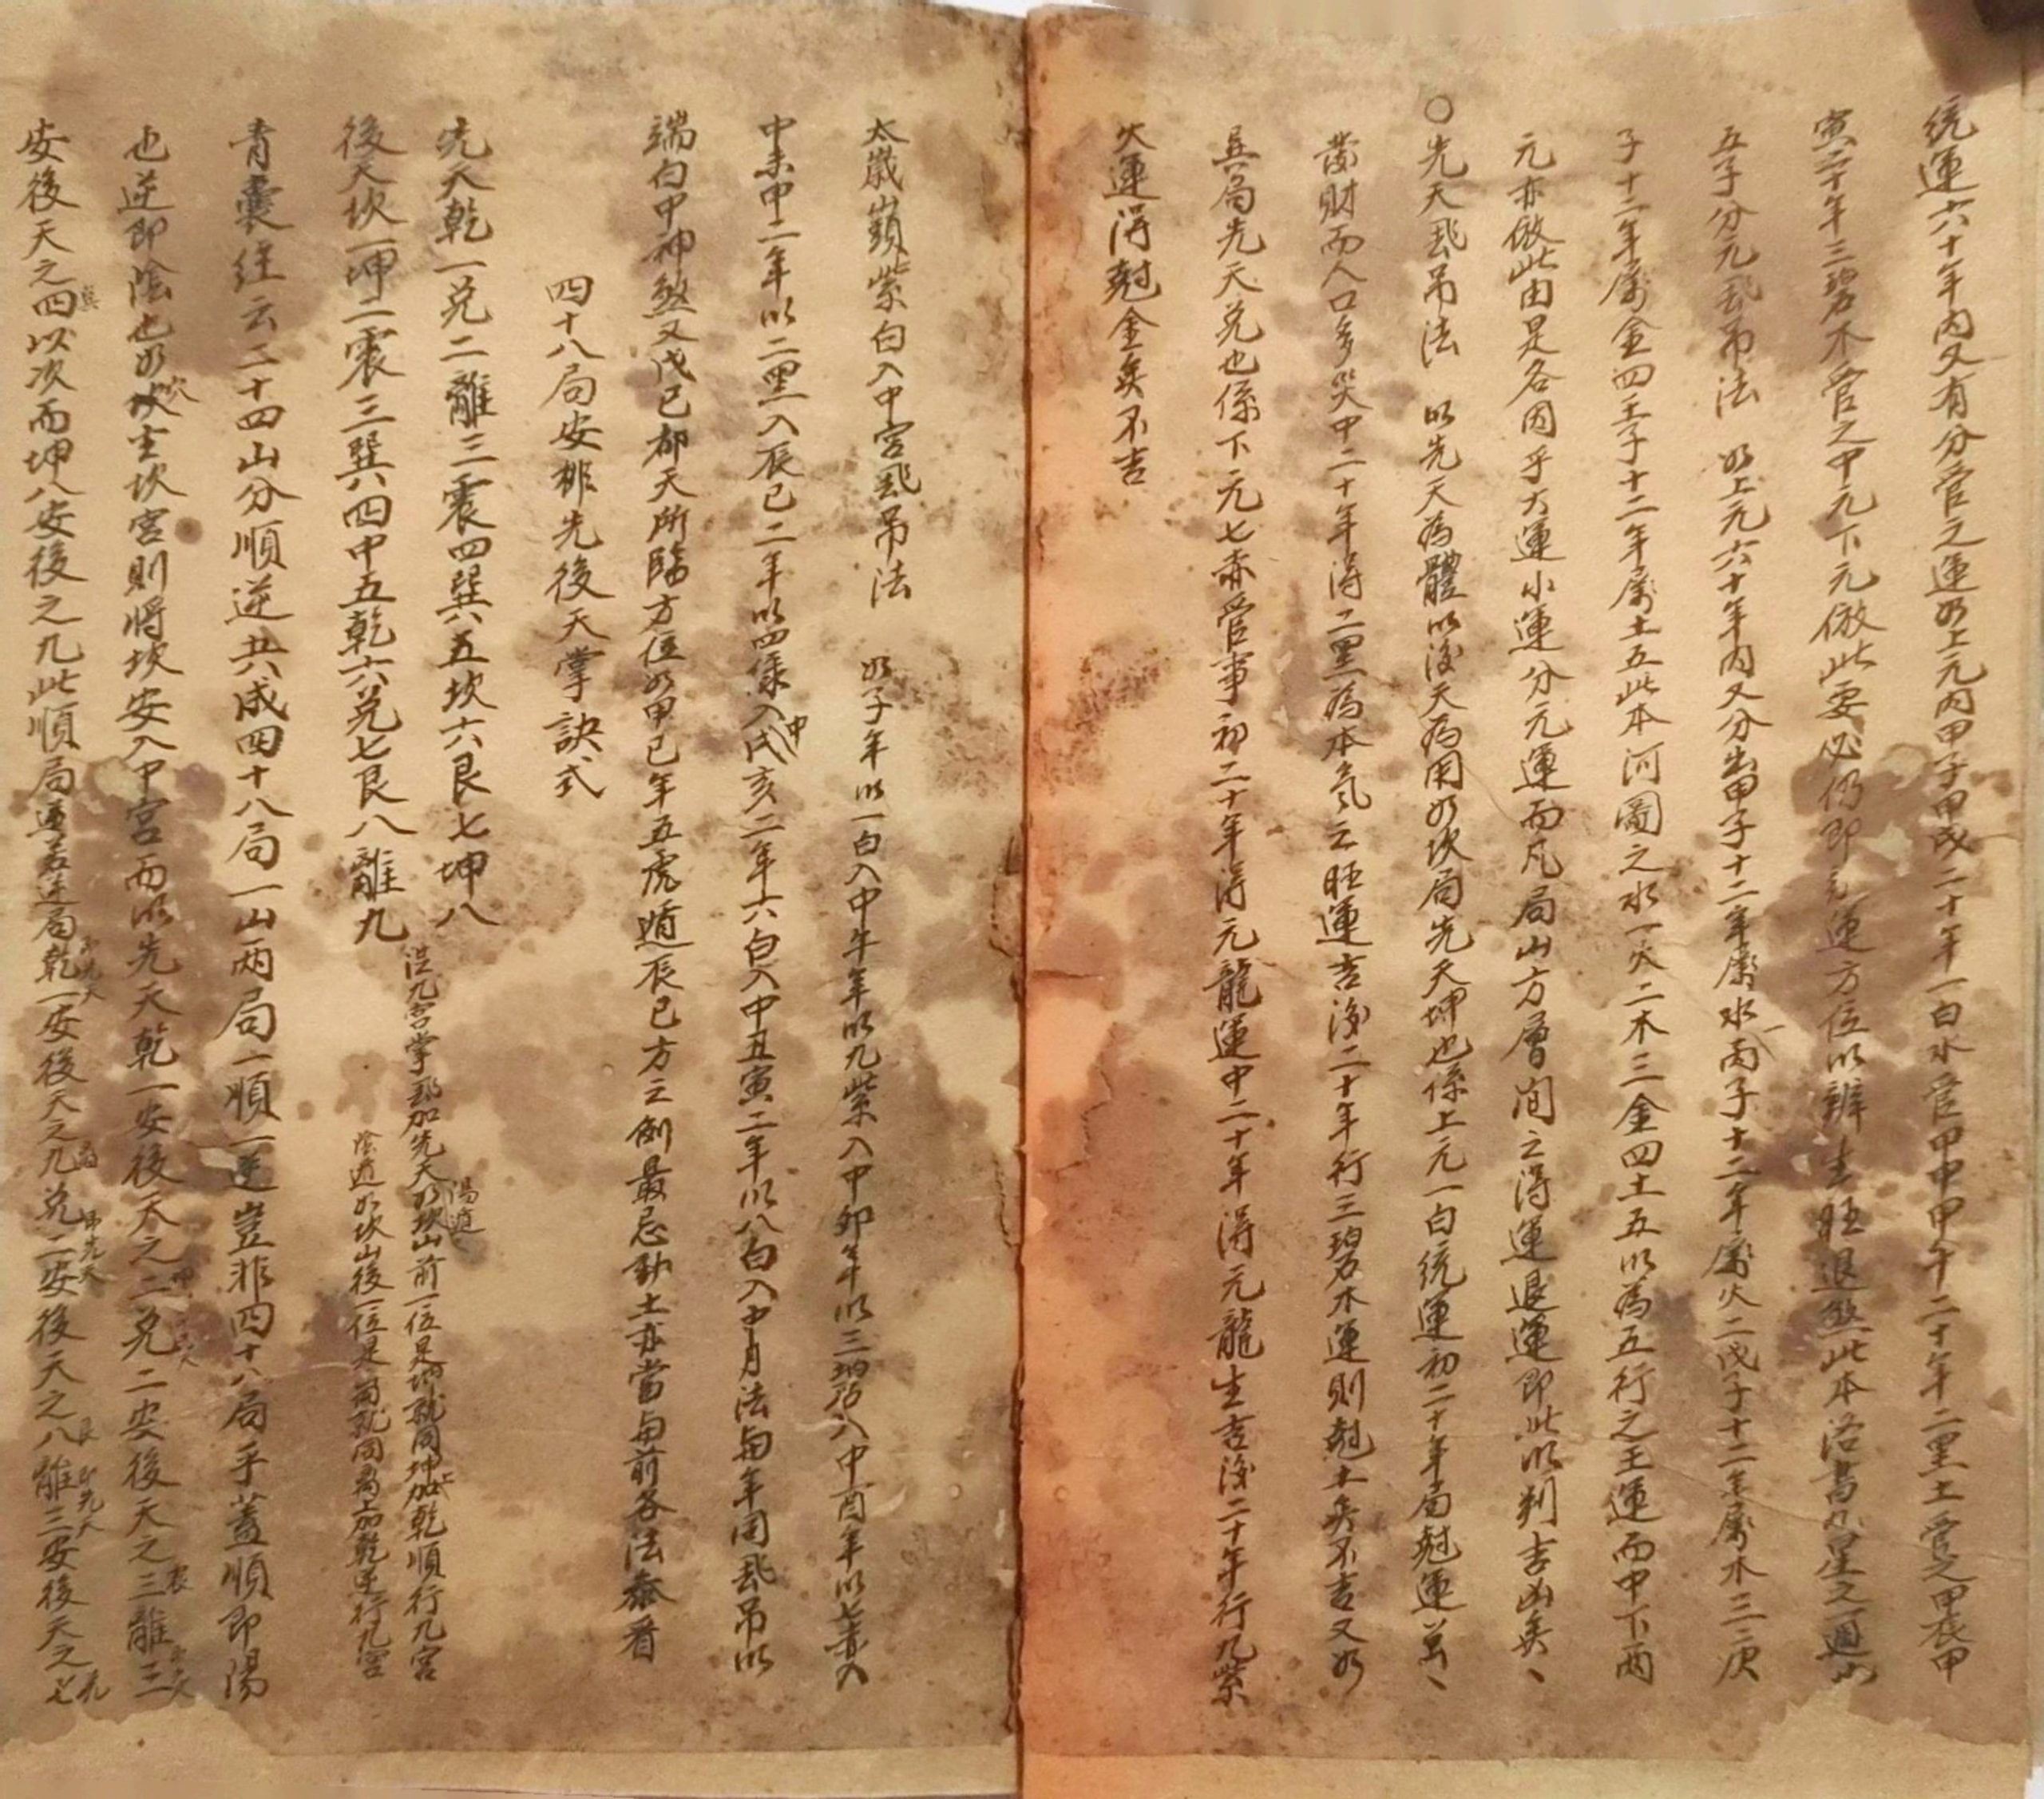 統運六十年內又有分管之運如上元內甲子甲戌二十年一白水管甲申甲午二十年二黑土管之甲辰甲
寅二十年三碧木管之中元下元倣此要必仍即元運方位以辨生旺退煞此本洛書九星之
五子分元飛吊法 如上元六十年內又分出甲子十二年屬水一丙子十二年屬火二戊子十二年屬木三庚
子十二年屬金四壬子十二年屬土五此本河圖之水一火二木三金四土五以為五行之主運而中下兩
元亦倣此由是各因乎大運小運分元運而凡局山方層间之得運退運即此以判吉凶矣、
○先天飛吊法 以先天為體以後天為用如坎局先天坤也係上元一白統運初二十年局尅運並、
發財而人口多災中二十年得二黑為本氣之旺運吉後二十年行三碧木運則尅土矣不吉又如
巽局先天兌也係下元七赤管事初二十年得元龍運中二十年得元龍生吉後二十年行九紫
火運得尅金矣不吉
太歲嶺紫白入中宮飛吊法 如子年以一白入中午年以九紫入中卯年以三碧入中酉年以七赤入
中未申二年以二黑入辰巳二年以四綠入中戌亥二年六白入中丑寅二年以八白入中月法每年同飛吊以
端白中神煞又戊己都天所臨方位如甲己年五虎遁辰巳方之例最忌動土亦當每前各法叅看
四十八局安排先後天掌訣式
先天乾一兌二離三震四巽五坎六艮七坤八
後天坎一坤二震三巽四中五乾六兌七艮八離九
九宮掌飛加先天如坎山前一位是坤就同坤上加乾順行九宮
陽遁
陰遁如坎山後一位是离就同离上加乾逆行九宮
青囊經云二十四山分順逆共成四十八局一山兩局一順一逆豈非四十八局乎蓋順即陽
也逆即陰也如坎主坎宮則將坎安入中宮而以先天乾一安後天之二兌二安後天之三離三
安後天之四以次而坤八安後之九此順局運若逆局乾一安後天之九兌二安後天之八離三安後天之七